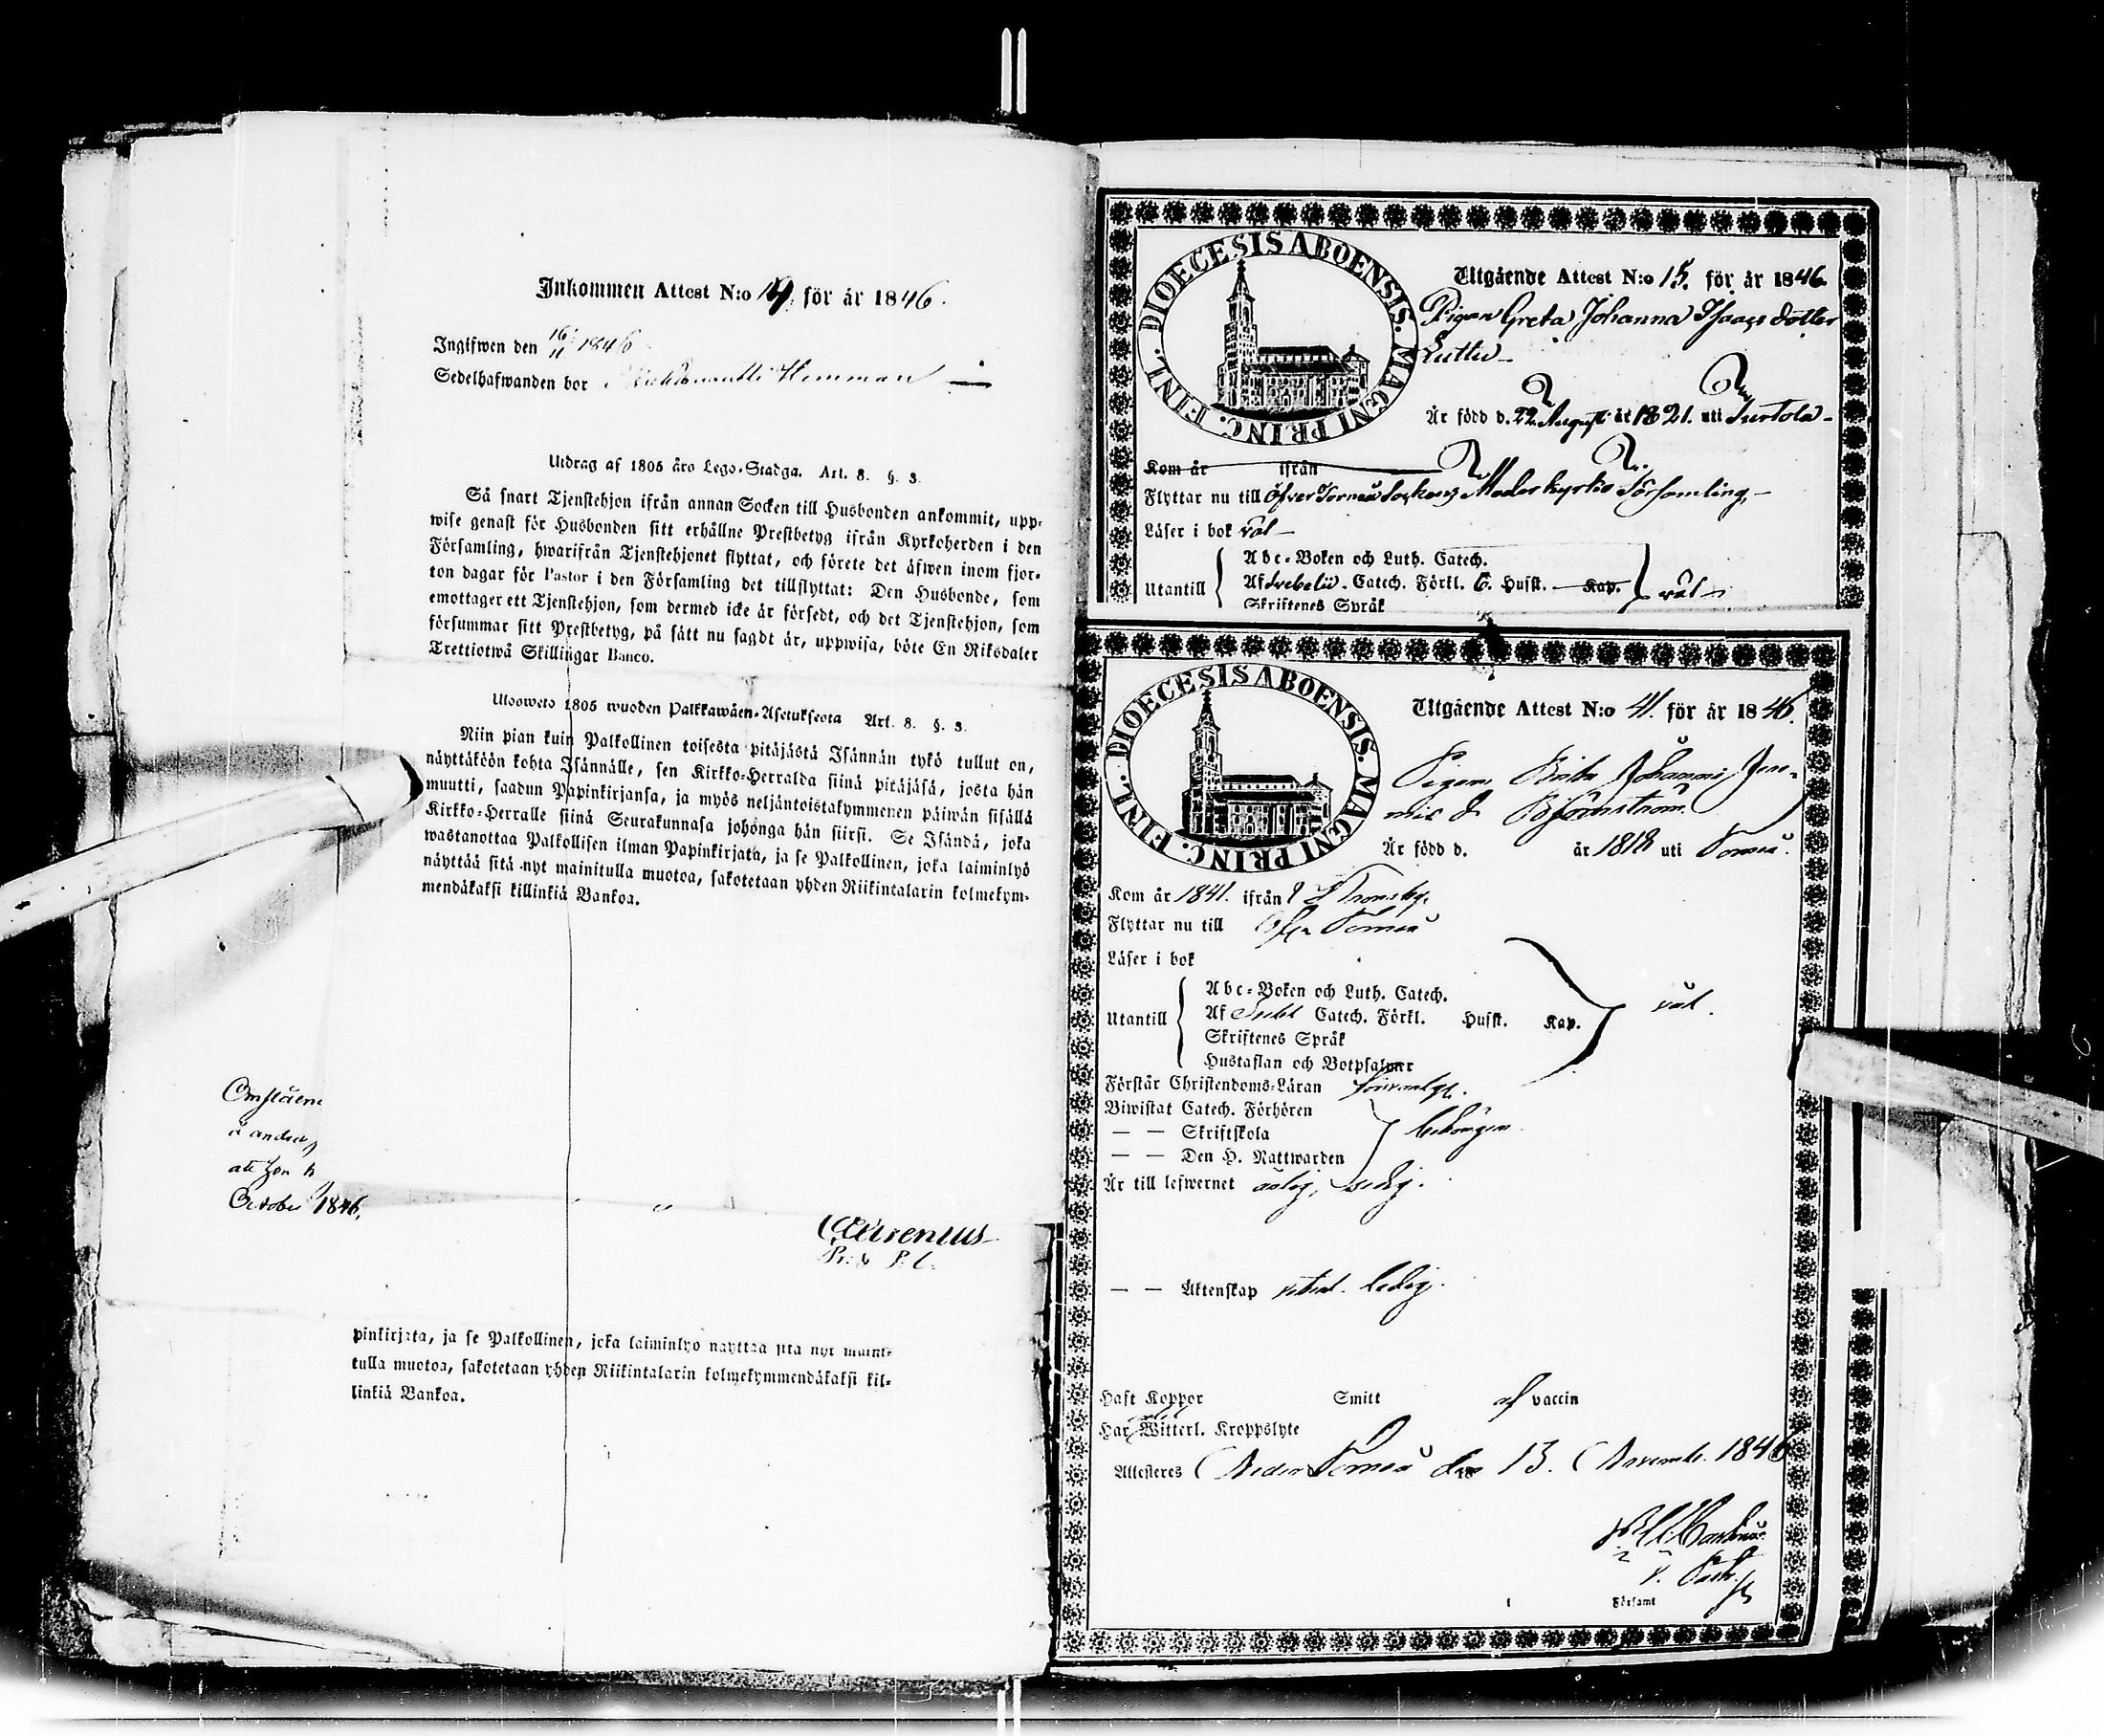 Inkommen Attest N:o 14. för år 1846.
Ingifwen den 16/11 1846
Sedelhafwanden bor Hemman
Utdrag af 1805 års Lego-Stadga. Art. 8. §. 3.
Så snart Tjenstehjon ifrån annan Socken till Husbonden ankommit, upp-
wise genast för Husbonden sitt erhållne Prestbetyg ifrån Kyrkoherden i den
Församling, hwarifrån Tjenstehjonet flyttat, och förete det äfwen inom fjor-
ton dagar för Pastor i den Församling det tillflyttat: Den Husbonde, som
emottager ett Tjenstehjon, som dermed icke är försedt, och det Tjenstehjon, som
försummar sitt Prestbetyg, på sätt nu sagdt är, uppwisa, böte En Riksdaler
Trettiotwå Skillingar Banco.
Ulosweto 1805 wuoden Palkkawäen-Asetuksesta Art. 8. §. 3.
Niin pian kuin Palkollinen toisesta pitäjästä Isännän tykö tullut on,
näyttäköön kohta Isännälle, sen Kirkko-Herralda siinä pitäjäsä, josta hän
muutti, saadun Papinkirjansa, ja myös neljäntoistakymmenen päiwän sisällä
Kirkko-Herralle siinä Seurakunnasa johonga hän siirsi. Se Isändä, joka
wastanottaa Palkollisen ilman Papinkirjata, ja se Palkollinen, joka laiminlyö
näyttää sitä nyt mainitulla muotoa, sakotetaan yhden Riikintalarin kolmekym-
mendäkaksi killinkiä Bankoa.
October 1846.
pinkirjata, ja se Palkollinen, joka laiminlyö näyttää sitä nyt mainit-
tulla muotoa, sakotetaan yhden Riikintalarin kolmekymmendäkaksi kil-
linkiä Bankoa.
DIOECESIS ABOENSIS. MAGNI PRINC. FINL.
Utgående Attest N:o 15. för år 1846.
Pigan Greta Johanna Isaacs dotter
Är född d. 22. Augusti år 1821. uti Turtola -
Kom år ifrån
Flyttar nu till Öfver Torneå Sockens Moderkyrko Församling. -
Läser i bok väl -
Abc-Boken och Luth. Catech.
Utantill Af Svebelii Catech. Förkl. 6. Husst. Kap. väl
Skriftenes Språk
DIOECESIS ABOENSIS. MAGNI PRINC. FINL.
Utgående Attest N:o 41. för år 1846.
Pigan Brita Johanna Jere-
mis d. Björnström
Är född d. år 1818 uti Torneå.
Kom år 1841. ifrån
Flyttar nu till Öfver Torneå
Läser i bok
Abc-Boken och Luth. Catech.
Utantill Af Catech. Förkl. Husst. Kap. väl.
Skriftenes Språk
Hustaflan och Botpsalmer
Förstår Christendoms-Läran försvarligt.
Biwistat Catech. Förhören
— — Skriftskola behörigen
— — Den H. Nattwarden
Är till lefwernet ärlig, sedig.
— — Äktenskap ledig.
Haft Koppor Smitt af vaccin
Har Witterl. Kroppslyte
Attesteras Neder Torneå den 13. November 1846
v. Past.
Församl